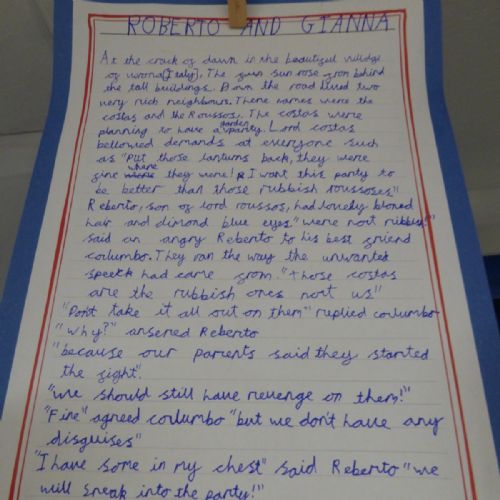 ROBERTO AND GIANNA
At the crack of dawn in the beautiful village
of verona(Italy), The sun rose from behind
the tall buildings. Down the road lived two
very rich neighbours. There names were the
costas and the Roussos. The costas were
planning to have a garden party. Lord costas
bellowed demands at everyone such
as "Put those lanturns back, they were
fine where they were! I want this party to
be better than those rubbish roussoses"
Reberto, son of lord roussos, had lovely blond
hair and dimond blue eyes. "were not rubbish!"
said an angry Reberto to his best friend
corlumbo. They ran the way the unwanted
speech had came from. "Those costas
are the rubbish ones nott us"
"Don't take it all out on them" replied corlumbo
"why?" ansered Reberto
"because our parents said they started
the fight".
"we should still have revenge on them!"
"Fine" agreed corlumbo "but we don't have any
disguises"
"I have some in my chest" said Reberto "we
will sneak into the party!"